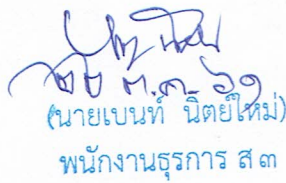 ๒๒ ต.ค. ๖๑
(นายเบนท์ นิตย์ใหม่)
พนักงานธุรการ ส ๓